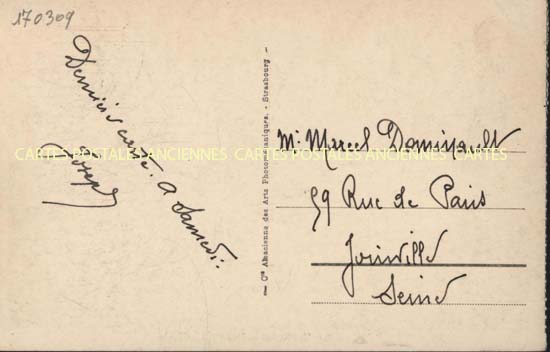 170309
Dernière carte. A Samedi.
Joseph
Cie Alsacienne des Arts Photomécaniques. - Strasbourg
Mr Marcel
59 Rue de Paris
Joinville
Seine
CARTES POSTALES ANCIENNES CARTES POSTALES ANCIENNES CARTES